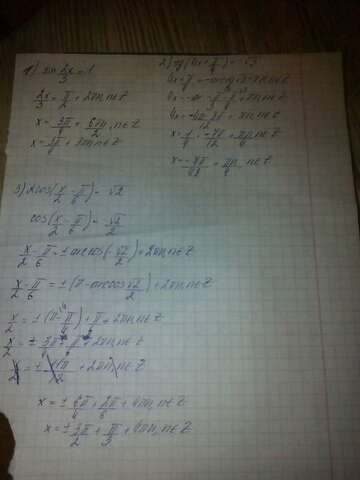 1) sin 2x/3 = 1
2x/3 = π/2 + 2πn, n∈Z
x = 3π/4 + 6πn/2, n∈Z
x = 3π/4 + 3πn, n∈Z
2) tg(4x + π/4) = -√3
4x + π/4 = -arctg√3 + πn, n∈Z
x = -7π/48 + πn/4, n∈Z
3) 2cos(x/2 - π/6) = -√2
cos(x/2 - π/6) = -√2/2
x/2 - π/6 = ± arccos(-√2/2) + 2πn, n∈Z
x/2 - π/6 = ± (π - arccos √2/2) + 2πn, n∈Z
x/2 = ± (π - π/4) + π/6 + 2πn, n∈Z
x/2 = ± 3π/4 + π/6 + 2πn, n∈Z
x = ± 6π/4 + 2π/6 + 4πn, n∈Z
x = ± 3π/2 + π/3 + 4πn, n∈Z